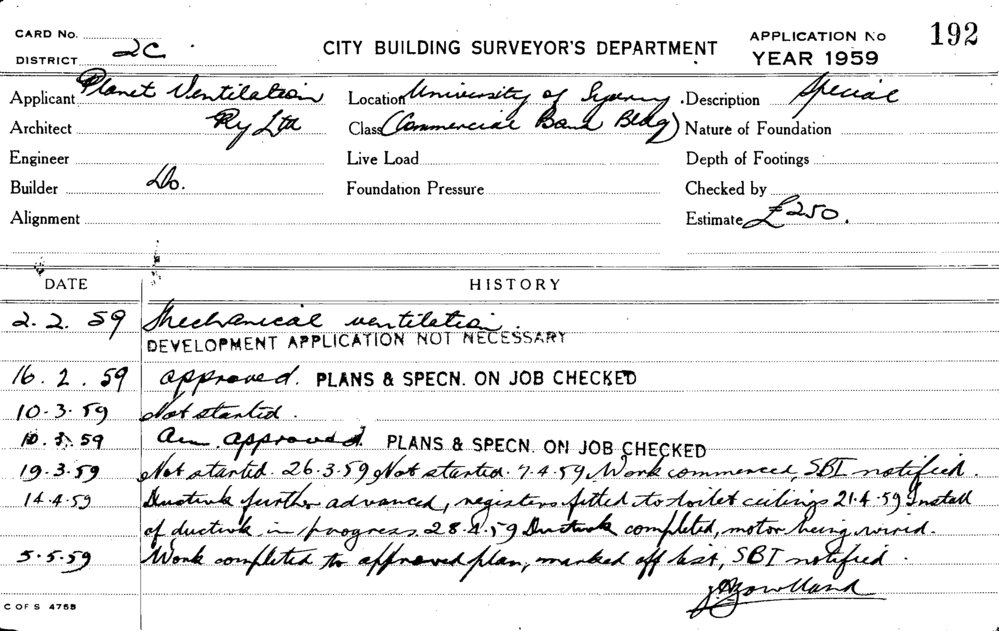 CARD No.
DISTRICT 2C
CITY BUILDING SURVEYOR'S DEPARTMENT
APPLICATION No 192
YEAR 1959
Applicant Planet Ventilation Location University of Sydney Description Special
Architect Pty Ltd Class (Commercial Bank Bldg) Nature of Foundation
Engineer Live Load Depth of Footings
Builder Do. Foundation Pressure Checked by
Alignment Estimate £250.
DATE HISTORY
2.2.59 Mechanical ventilation.
DEVELOPMENT APPLICATION NOT NECESSARY
16.2.59 approved. PLANS & SPECN. ON JOB CHECKED
10.3.59 Not started.
10.3.59 Am approved. PLANS & SPECN. ON JOB CHECKED
19.3.59 Not started. 26.3.59 Not started. 7.4.59 Work commenced, SBI notified.
14.4.59 Ductwk further advanced, registers fitted to toilet ceilings 21.4.59 Install
of ductwk in progress 28.4.59 Ductwk completed, motor being wired.
5.5.59 Work completed to approved plan, marked off list, SBI notified.
C OF S 475B